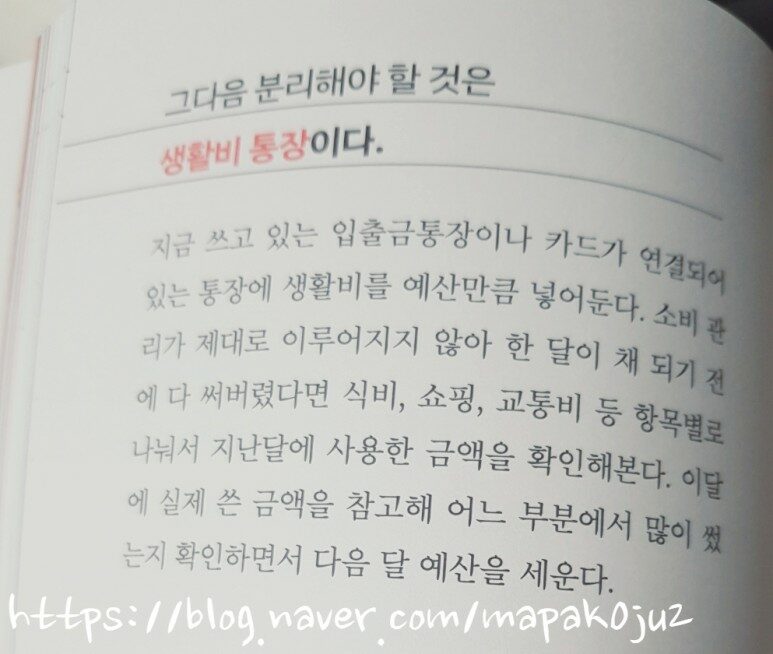 그다음 분리해야 할 것은
생활비 통장이다.
지금 쓰고 있는 입출금통장이나 카드가 연결되어
있는 통장에 생활비를 예산만큼 넣어둔다. 소비 관
리가 제대로 이루어지지 않아 한 달이 채 되기 전
에 다 써버렸다면 식비, 쇼핑, 교통비 등 항목별로
나눠서 지난달에 사용한 금액을 확인해본다. 이달
에 실제 쓴 금액을 참고해 어느 부분에서 많이 썼
는지 확인하면서 다음 달 예산을 세운다.
https://blog.naver.com/mapak0ju2